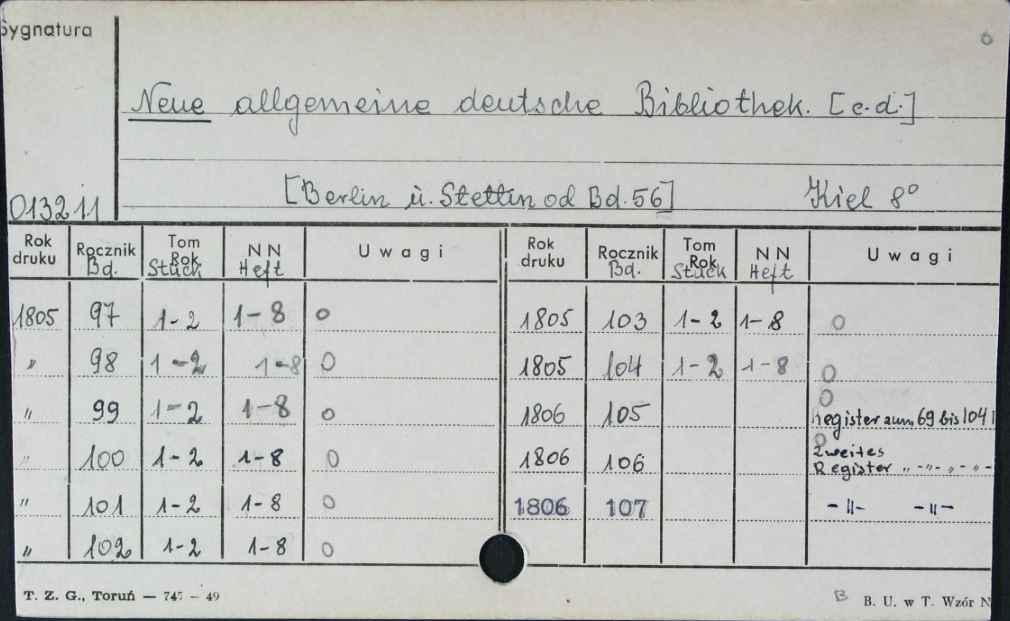 Sygnatura
6
Neue allgemeine deutsche Bibliothek. [c.d.]
[Berlin u. Stettin od Bd. 56] Kiel 8°
013211
Rok druku Rocznik Bd. Tom Rok Stück NN Heft Uwagi Rok druku Rocznik Bd. Tom Rok Stück NN Heft Uwagi
1805 97 1-2 1-8 0 1805 103 1-2 1-8 0
" 98 1-2 1-8 0 1805 104 1-2 1-8 0
" 99 1-2 1-8 0 1806 105 0 Register zum 69 bis 104
" 100 1-2 1-8 0 1806 106 0 Zweites Register " -"- " - " -
" 101 1-2 1-8 0 1806 107 -"- -"-
" 102 1-2 1-8 0
T. Z. G., Toruń — 747 - 49
B B. U. w T. Wzór N